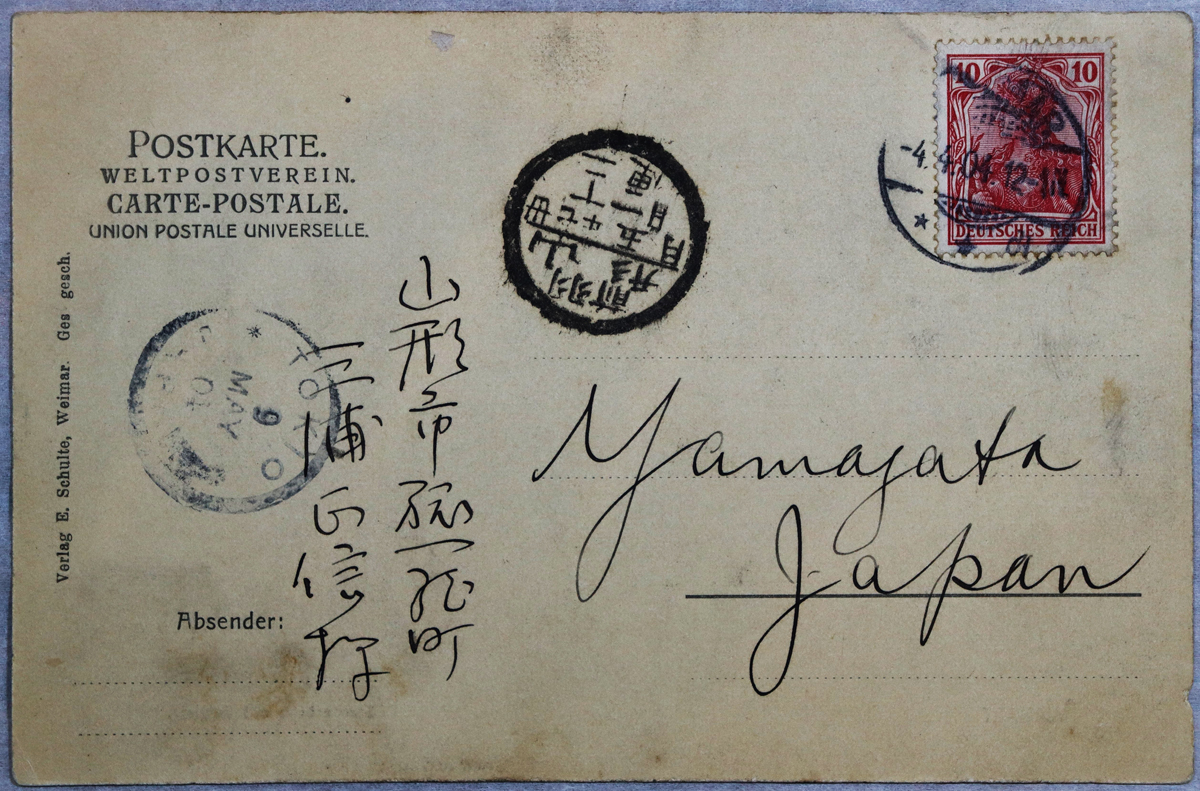 POSTKARTE.
WELTPOSTVEREIN.
CARTE-POSTALE.
UNION POSTALE UNIVERSELLE.
Verlag E. Schulte, Weimar. Ges gesch.
10 10
DEUTSCHES REICH
-4.4.04 12-1N
TOKIO
9
MAY
04
JAPAN
山形市
町
三浦正信様
Yamagata
Japan
Absender: